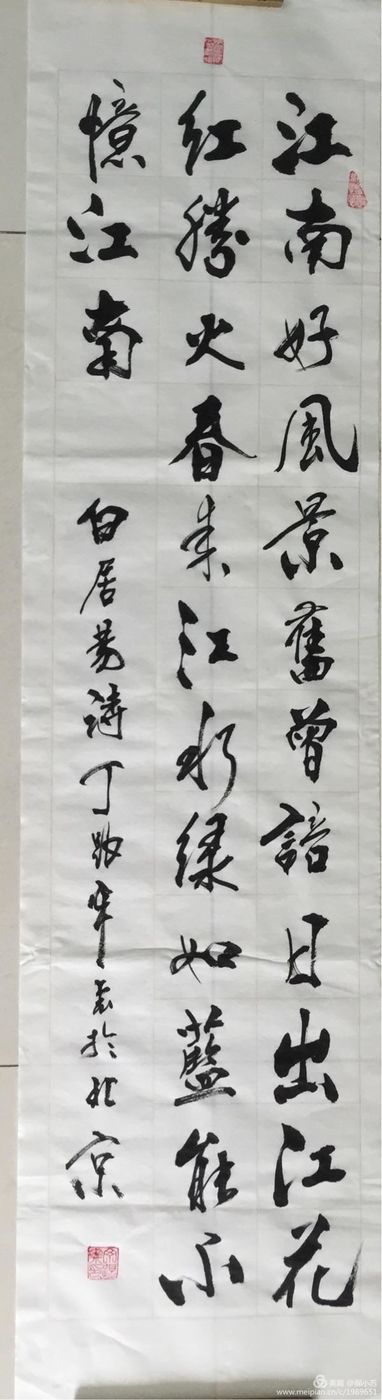 江南好風景舊曾諳日出江花
红勝火春来江水绿如藍能不
憶江南
白居易詩丁酉年 於北京
美篇 @郝小芯
www.meipian.cn/c/1989651